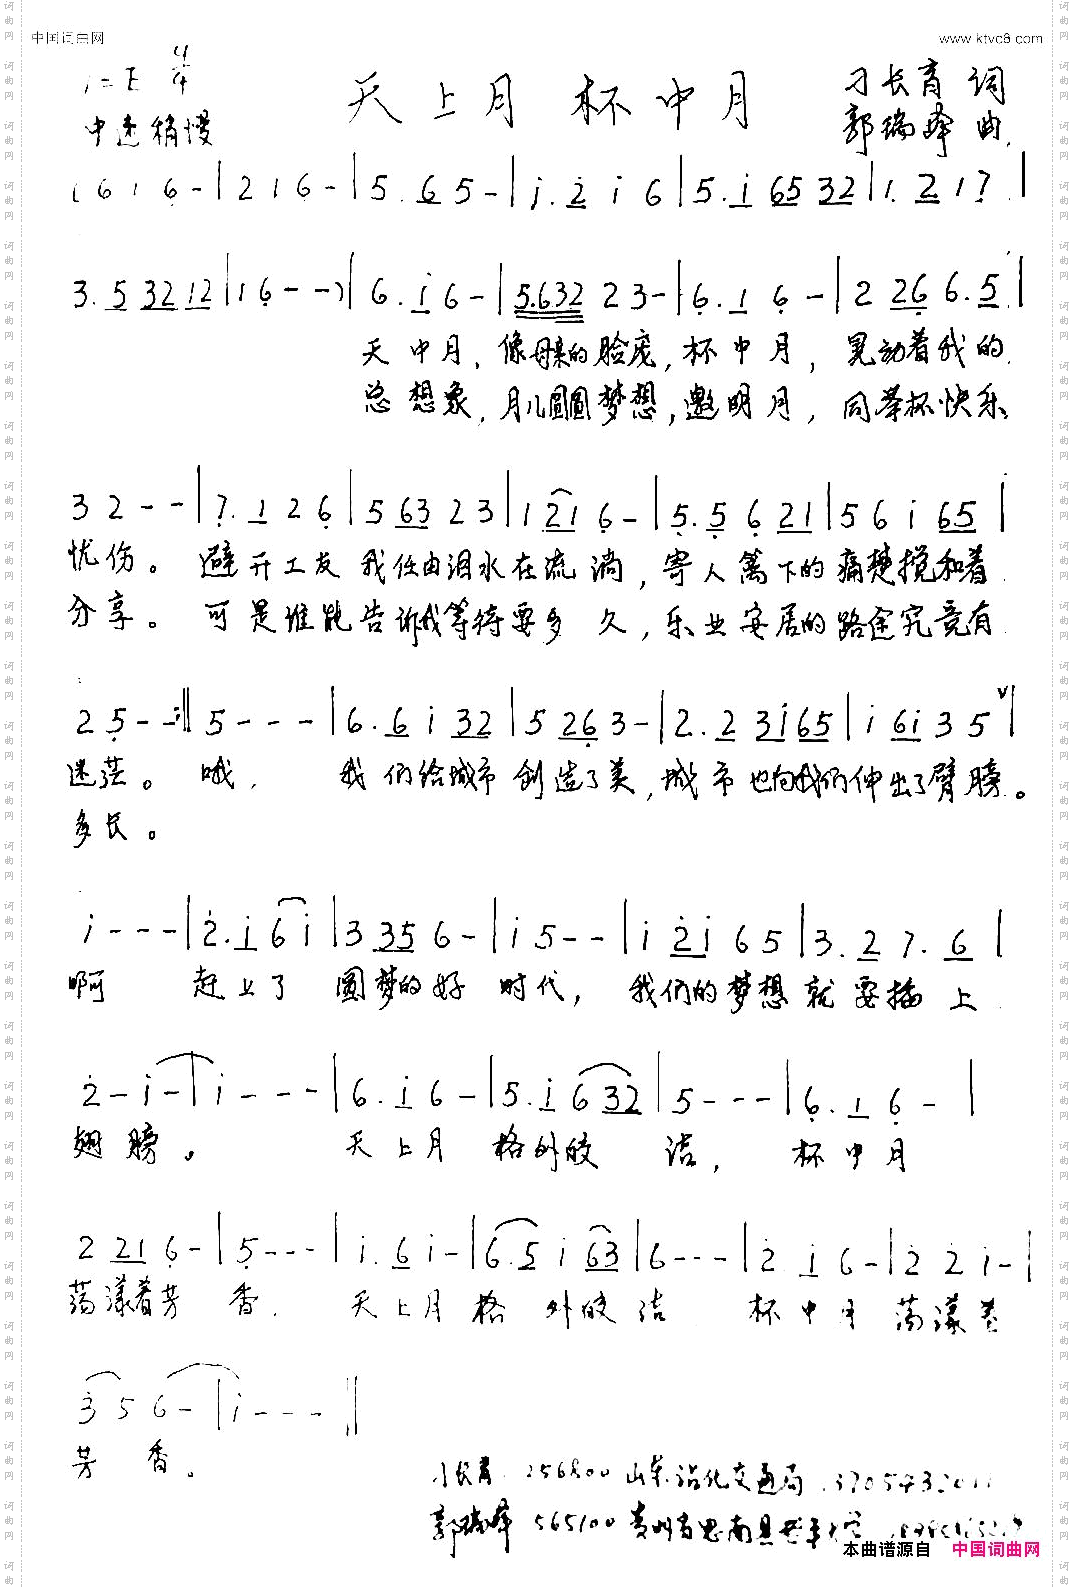 中国词曲网 www.ktvc8.com
1=E 4/4 天上月 杯中月 刁长育 词
中速稍慢 郭瑞峰 曲
(6 1 6 - | 2 1 6 - | 5. 6 5 - | i. 2 i 6 | 5. i 65 32 | 1. 2 1 7 |
3. 5 32 12 | 1 6 - -) | 6. i 6 - | 5.632 2 3 - | 6. 1 6 - | 2 26 6. 5 |
天中月，像母亲的脸庞，杯中月，晃动着我的
总想象，月儿圆圆梦想，邀明月，同举杯快乐
3 2 - - | 7. 1 2 6 | 5 63 2 3 | 1 21 6 - | 5. 5 6 21 | 5 6 i 65 |
忧伤。避开工友我任由泪水在流淌，寄人篱下的痛楚搅和着
分享。可是谁能告诉我等待要多久，乐业安居的路途究竟有
2 5 - - :‖ 5 - - - | 6. 6 i 32 | 5 26 3 - | 2. 2 3i 65 | i 6i 3 5 ∨ |
迷茫。哦，我们给城市创造了美，城市也向我们伸出了臂膀。
多长。
i - - - | 2. i 6 i | 3 35 6 - | i 5 - - | i 2i 6 5 | 3. 2 7. 6 |
啊 赶上了圆梦的好时代，我们的梦想就要插上
2 - i - | i - - - | 6. i 6 - | 5. i 6 32 | 5 - - - | 6. 1 6 - |
翅膀。天上月格外皎洁，杯中月
2 21 6 - | 5 - - - | i. 6 i - | 6. 5 i 63 | 6 - - - | 2. i 6 - | 2 2 i - |
荡漾着芳香。天上月格外皎洁 杯中月荡漾着
3 5 6 - | i - - - ‖
芳香。
刁长育 256800 山东沾化交通局
郭瑞峰 565100 贵州省思南县
本曲谱源自 中国词曲网